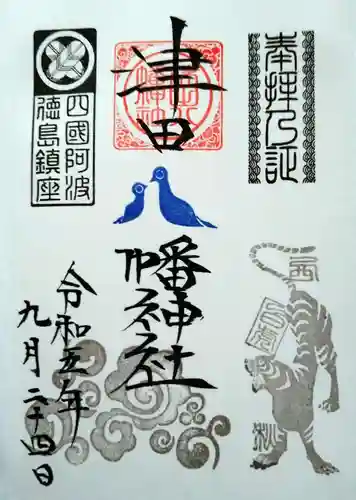 奉拝乃証
津田
幡神社
四國阿波
徳島鎮座
令和五年
九月二十四日
秋